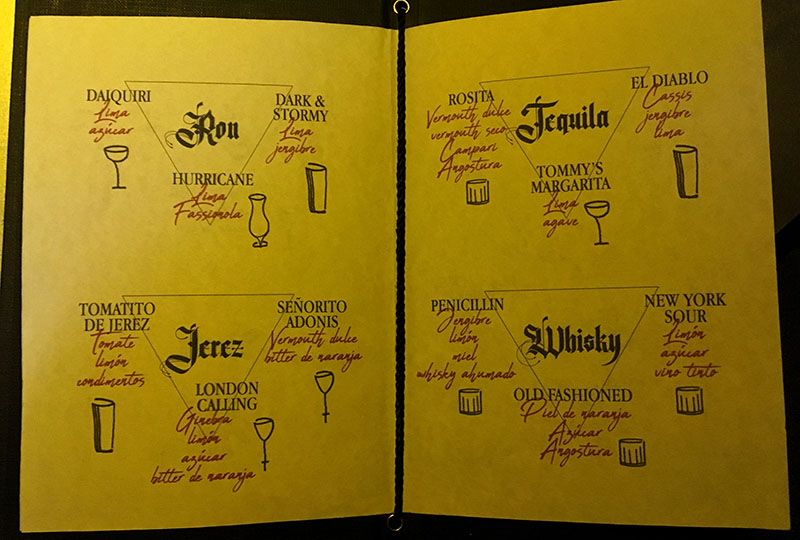 Ron
DAIQUIRI
Lima
azúcar
DARK &
STORMY
Lima
jengibre
HURRICANE
Lima
Fassignola
Jerez
TOMATITO
DE JEREZ
Tomate
limón
condimentos
SEÑORITO
ADONIS
Vermouth dulce
bitter de naranja
LONDON
CALLING
Ginebra
limón
azúcar
bitter de naranja
Tequila
ROSITA
Vermouth dulce
vermouth seco
Campari
Angostura
EL DIABLO
Cassis
jengibre
lima
TOMMY'S
MARGARITA
Lima
agave
Whisky
PENICILLIN
Jengibre
limón
miel
whisky ahumado
NEW YORK
SOUR
Limón
azúcar
vino tinto
OLD FASHIONED
Piel de naranja
Azúcar
Angostura